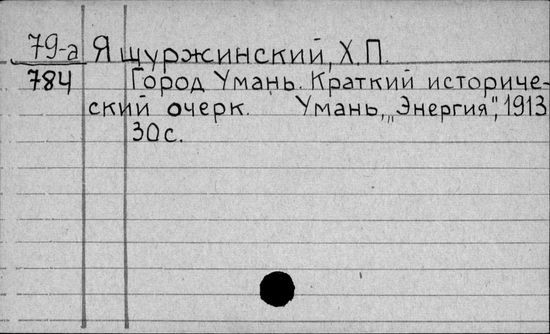 79-а Ящуржинский, Х.П.
784 Город Умань. Краткий историче-
ский очерк. Умань, „Энергия", 1913
30с.